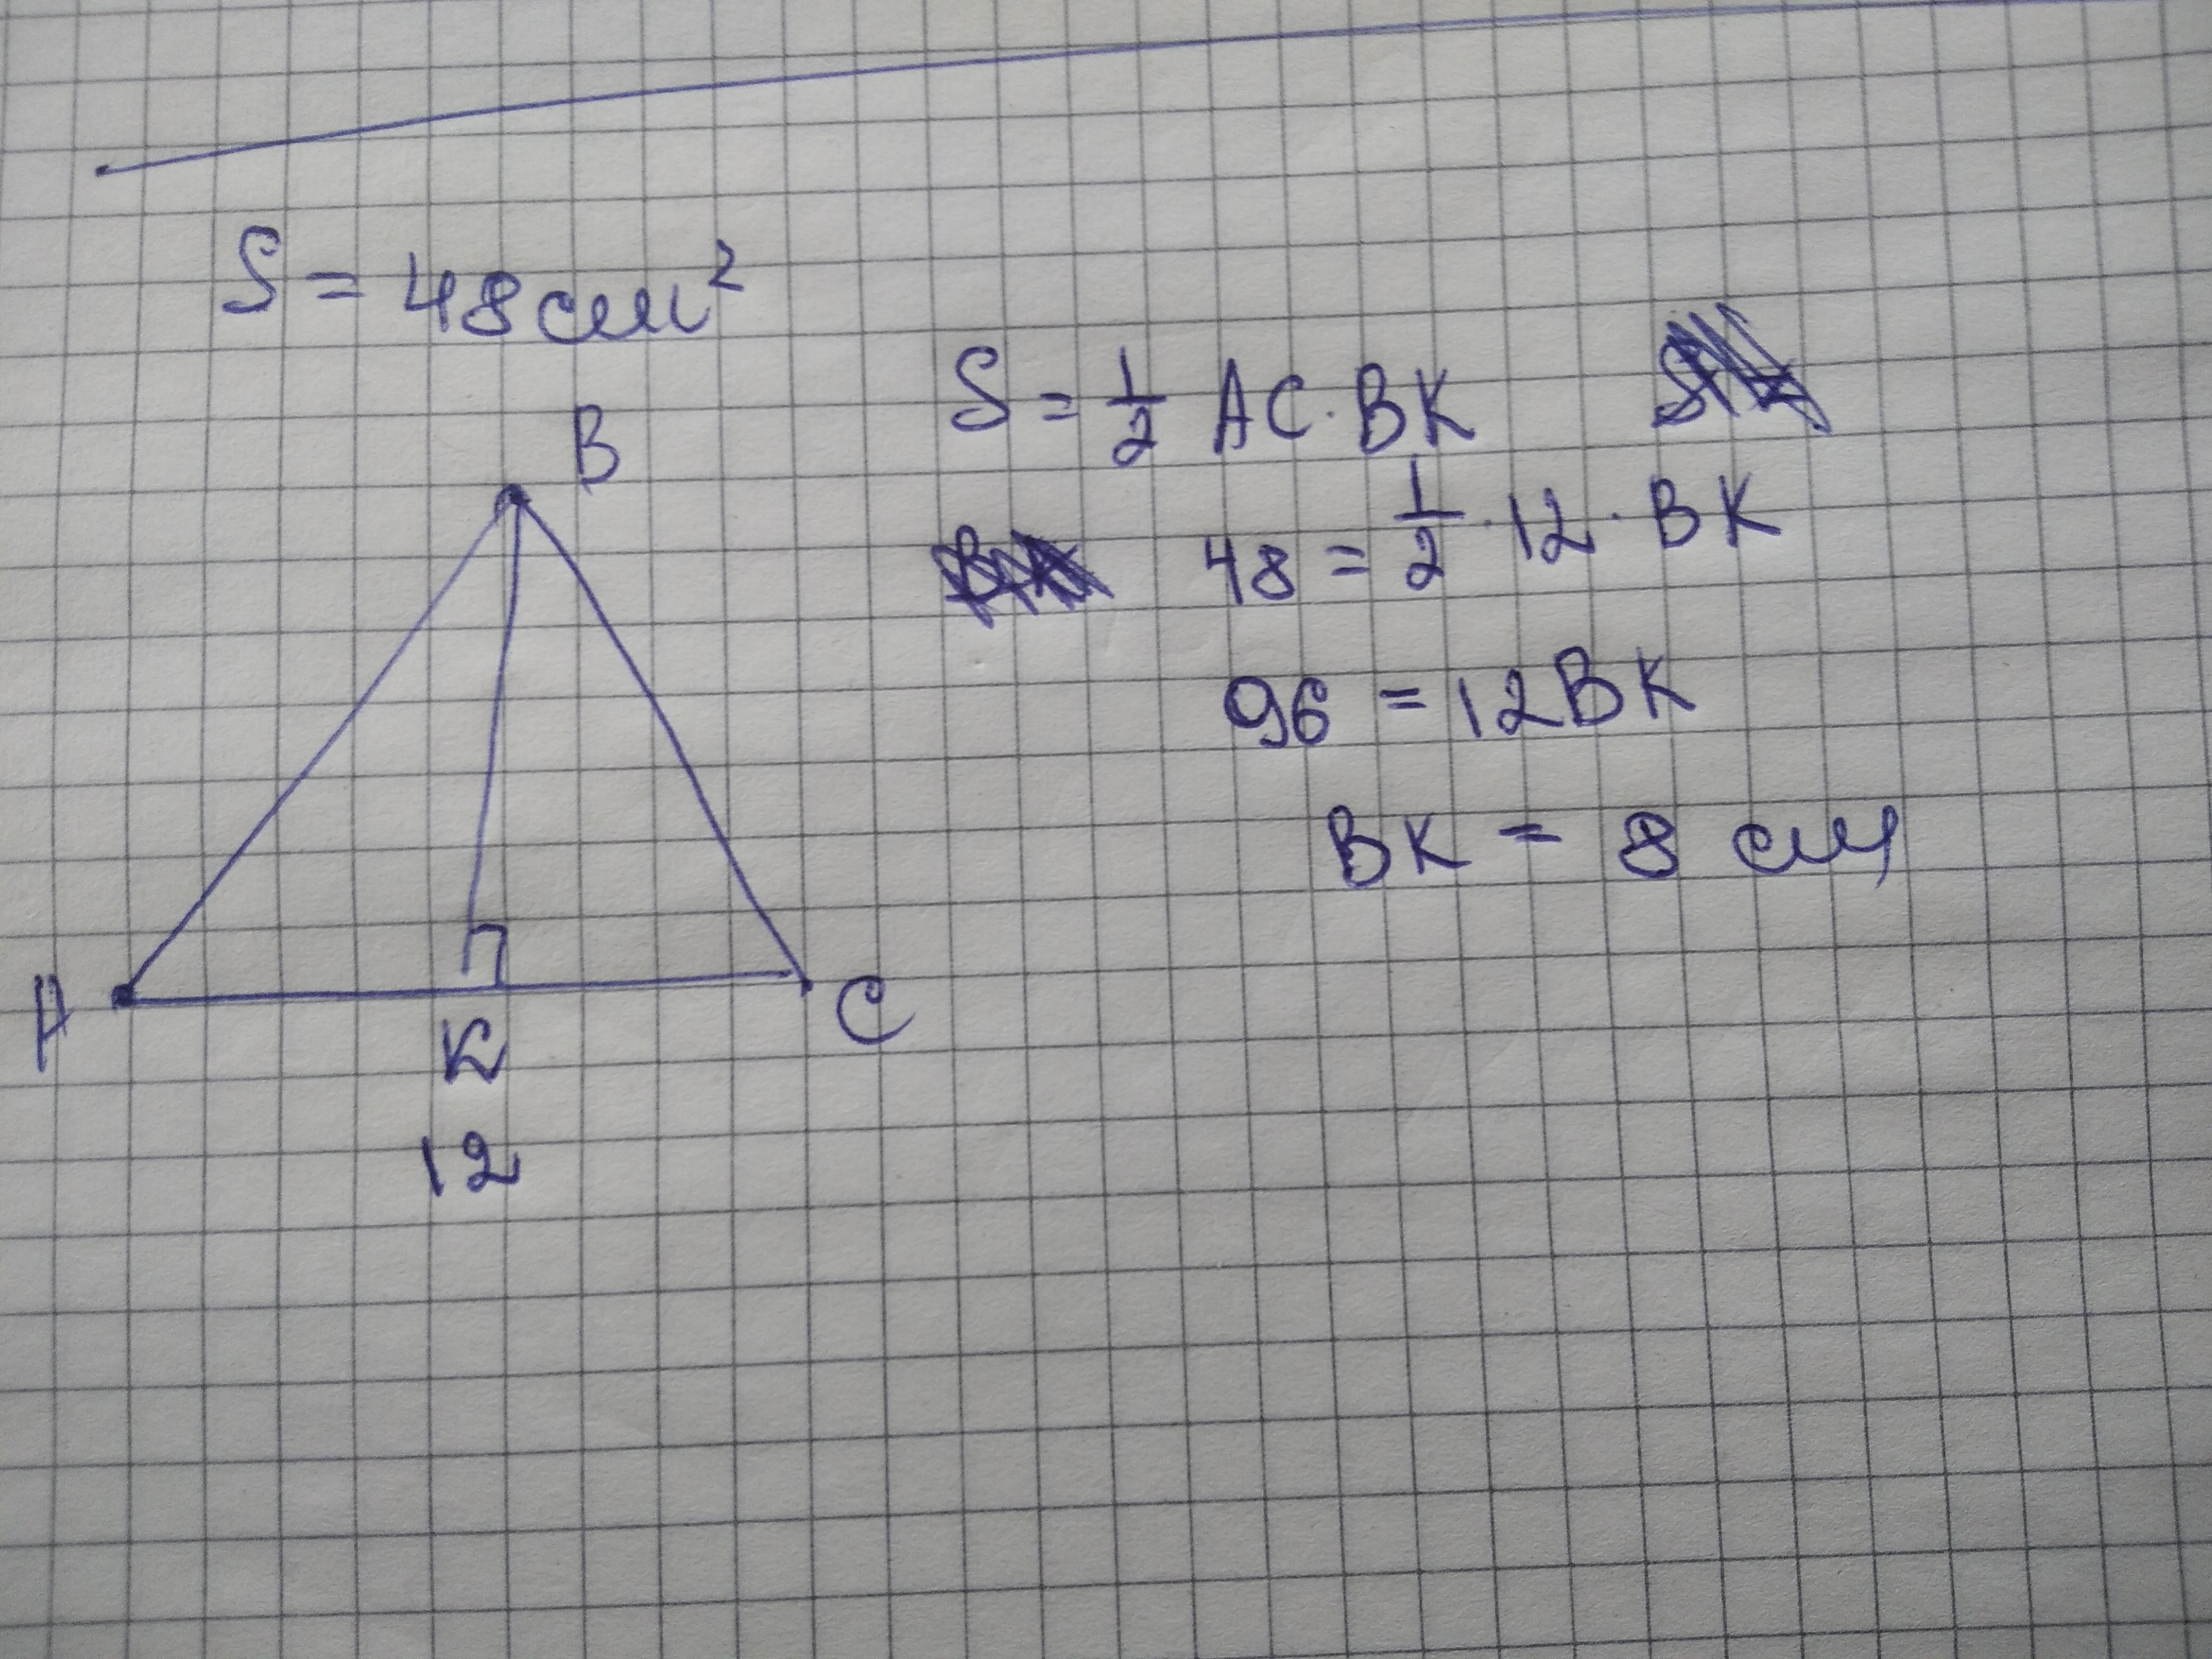 S = 48 см²
B
A
K
C
12
S = 1/2 AC · BK
48 = 1/2 · 12 · BK
96 = 12BK
BK = 8 см